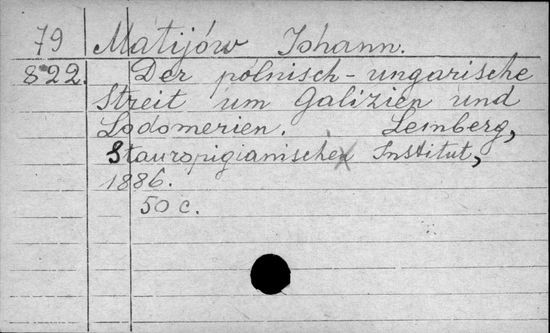 79 Matijów Johann.
8°22. Der polnisch-ungarische
Streit um Galizien und
Lodomerien. Lemberg,
Stauropigianische Institut,
1886.
50 c.